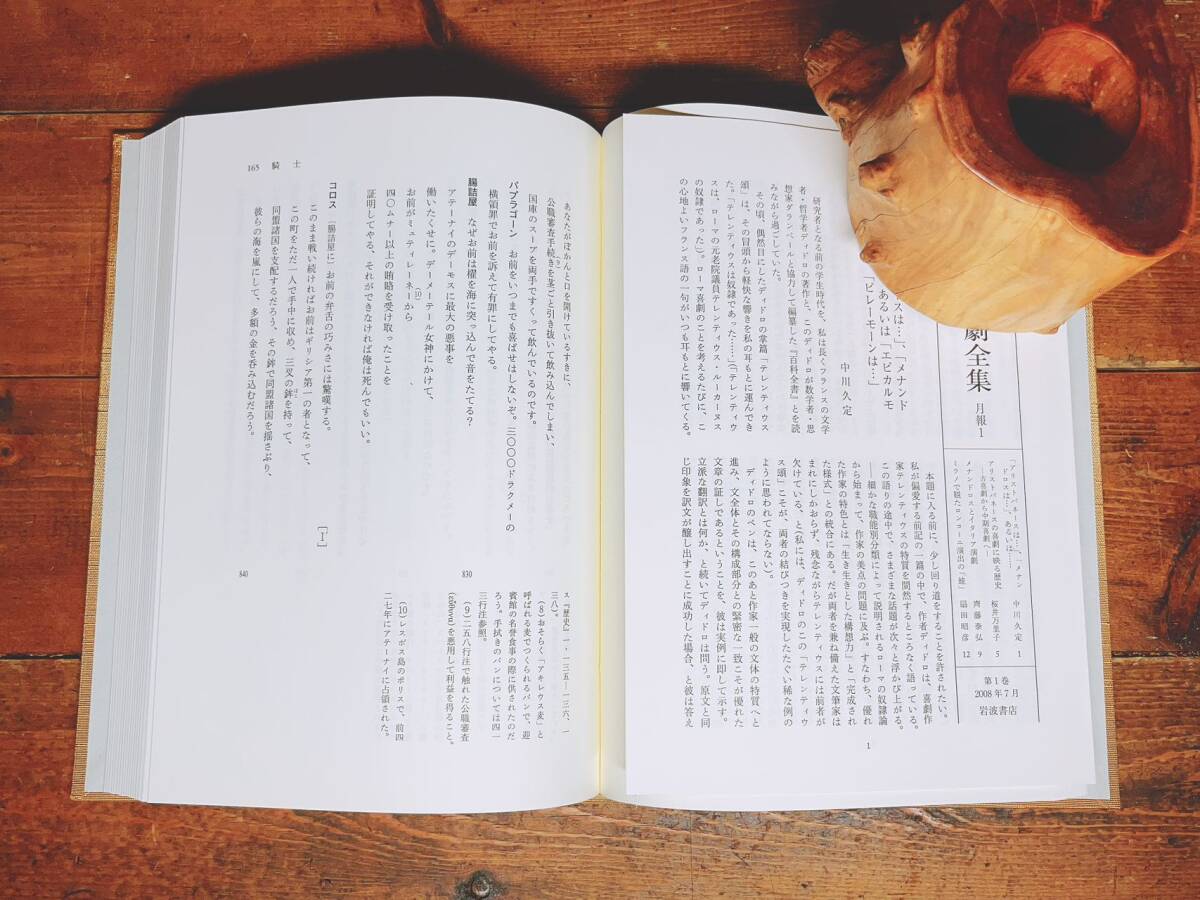 劇全集 月報1
「アリストパネースは…」、「メナンドロスは…」、あるいは…… 中川久定 1
アリストパネースの喜劇に映る歴史 桜井万里子 5
―古喜劇から中期喜劇へ― 齊藤泰弘 9
メナンドロスとイタリア演劇
ミラノで観たロンコーニ演出の『蛙』 扇田昭彦 12
第1巻
2008年7月
岩波書店
スは…」、「メナンド
あるいは「エピカルモ
「ピレーモーンは…」
中川久定
研究者となる前の学生時代を、私は長くフランスの文学
者・哲学者ディドロの著作と、このディドロが数学者・思
想家ダランベールと協力して編纂した『百科全書』とを読
みながら過ごしていた。
その頃、偶然目にしたディドロの掌篇「テレンティウス
頌」は、その冒頭から軽快な響きを私の耳もとに運んでき
た。「テレンティウスは奴隷であった……」(「テレンティウ
スは、ローマの元老院議員テレンティウス・ルーカーヌス
の奴隷であった」)。ローマ喜劇のことを考えるたびに、こ
の心地よいフランス語の一句がいつも耳もとに響いてくる。
本題に入る前に、少し回り道をすることを許されたい。
私が偏愛する前記の一篇の中で、作者ディドロは、喜劇作
家テレンティウスの特質を間然するところなく語っている。
この語りの途中で、さまざまな話題が次々と浮かび上がる。
―細かな職能別分類によって説明されるローマの奴隷論
から始まって、作家の美点の問題に及ぶ。すなわち、優れ
た作家の特色とは「生き生きとした構想力」と「完成され
た様式」との統合にある。だが両者を兼ね備えた文筆家は
まれにしかおらず、残念ながらテレンティウスには前者が
欠けている、と(私には、ディドロのこの「テレンティウ
ス頌」こそが、両者の結びつきを実現したたぐい稀な例の
ように思われてならない)。
ディドロのペンは、このあと作家一般の文体の特質へと
進み、文全体とその構成部分との緊密な一致こそが優れた
文章の証しであるということを、彼は実例に即して示す。
立派な翻訳とは何か、と続いてディドロは問う。原文と同
じ印象を訳文が醸し出すことに成功した場合、と彼は答え
1
あなたがぽかんと口を開けているすきに、
公職審査手続きを茎ごと引き抜いて飲み込んでしまい、(9)
国庫のスープを両手ですくって飲んでいるのです。
パプラゴーン お前をいつまでも喜ばせはしないぞ。三〇〇〇ドラクメーの
横領罪でお前を訴えて有罪にしてやる。
腸詰屋 なぜお前は櫂を海に突っ込んで音をたてる? 830
アテーナイのデーモスに最大の悪事を
働いたくせに。デーメーテール女神にかけて、
お前がミュティレーネーから(10)
四〇ムナー以上の賄賂を受け取ったことを
証明してやる、それができなければ俺は死んでもいい。
[Ⅰ]
コロス [腸詰屋に]お前の弁舌の巧みさには驚嘆する。
このまま戦い続ければお前はギリシア第一の者となって、
この町をただ一人で手中に収め、三叉の鉾を持って、
同盟諸国を支配するだろう、その鉾で同盟諸国を揺さぶり、 840
彼らの海を嵐にして、多額の金を呑み込むだろう。
165 騎士
ス『歴史』一・一三五―一三六、一
三八)。
(8) おそらく「アキレウス麦」と
呼ばれる麦でつくられるパンで、迎
賓館の名誉食事の際に供されたのだ
ろう。手拭きのパンについては四一
三行注参照。
(9) 二五八行注で触れた公職審査
(εὔθυνα)を悪用して利益を得ること。
(10) レスボス島のポリスで、前四
二七年にアテーナイに占領された。